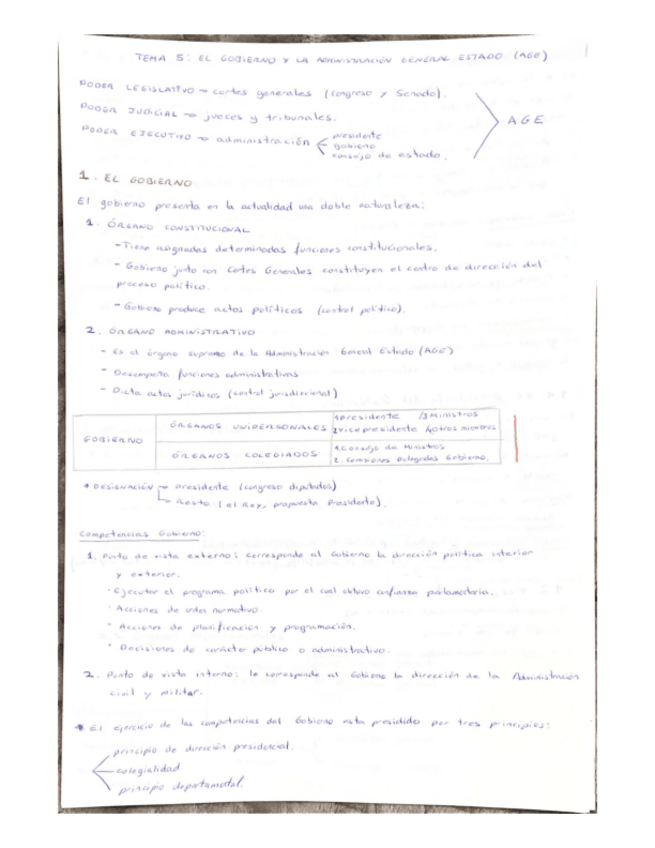 TEMA 5: EL GOBIERNO Y LA ADMINISTRACIÓN GENERAL ESTADO (AGE)
PODER LEGISLATIVO → cortes generales (congreso y Senado).
PODER JUDICIAL → jueces y tribunales.
AGE
PODER EJECUTIVO → administración
presidente
gobierno
consejo de estado.
1. EL GOBIERNO
El gobierno presenta en la actualidad una doble naturaleza:
1. ÓRGANO CONSTITUCIONAL
- Tiene asignadas determinadas funciones constitucionales.
- Gobierno junto con Cortes Generales constituyen el centro de dirección del
proceso político.
- Gobierno produce actos políticos (control político).
2. ÓRGANO ADMINISTRATIVO
- Es el órgano supremo de la Administración General Estado (AGE)
- Desempeña funciones administrativas
- Dicta actos jurídicos (control jurisdiccional)
GOBIERNO
ÓRGANOS UNIPERSONALES
1. presidente /3 Ministros
2 vicepresidente 4 otros miembros
ÓRGANOS COLEGIADOS
1. Consejo de Ministros
2. Comisiones Delegadas Gobierno.
* DESIGNACIÓN → presidente (congreso diputados)
→ Resto (el Rey, propuesta Presidente).
Competencias Gobierno:
1. Punto de vista externo: corresponde al Gobierno la dirección política interior
y exterior.
· Ejecutar el programa político por el cual obtuvo confianza parlamentaria.
· Acciones de orden normativo.
· Acciones de planificación y programación.
· Decisiones de carácter público o administrativo.
2. Punto de vista interno: le corresponde al Gobierno la dirección de la Administración
civil y militar.
* El ejercicio de las competencias del Gobierno esta presididos por tres principios:
principio de dirección presidencial.
colegialidad
principio departamental.